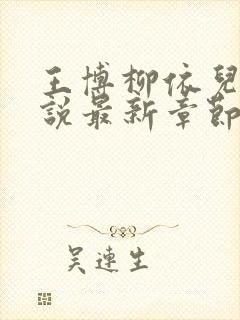 王博柳依兒
說最新章節
吴連生